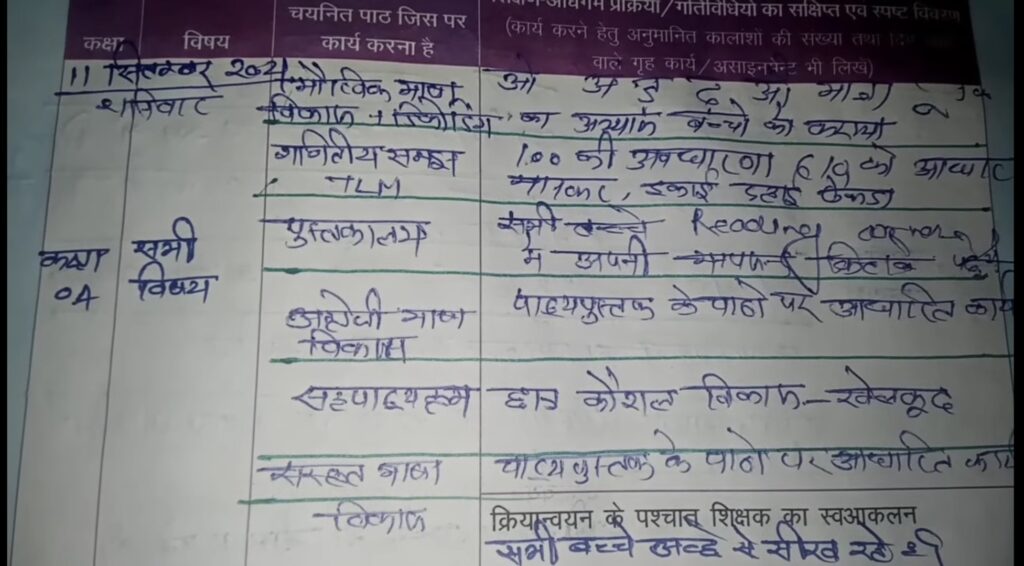 शिक्षण-अधिगम प्रक्रिया/गतिविधियों का संक्षिप्त एवं स्पष्ट विवरण
कक्षा विषय चयनित पाठ जिस पर कार्य करना है
(कार्य करने हेतु अनुमानित कालांशों की संख्या तथा दिए
वाले गृह कार्य/असाइनमेन्ट भी लिखें)
11 सितम्बर 2021
शनिवार
मौखिक भाषा
विकास +
का अभ्यास बच्चो को कराया
गणितीय समझ
TLM
100 की अवधारणा को आधार
मानकर, इकाई दहाई सैकडा
कक्षा
04
सभी
विषय
पुस्तकालय
सभी बच्चे Reading
मे अपनी किताब
भाषा
विकास
पाठ्यपुस्तक के पाठो पर आधारित कार्य
सहपाठ्यक्रम
छात्र कौशल विकास – खेलकूद
संस्कृत भाषा
विकास
पाठ्यपुस्तक के पाठो पर आधारित कार्य
क्रियान्वयन के पश्चात् शिक्षक का स्वआकलन
सभी बच्चे से सीख रहे थे